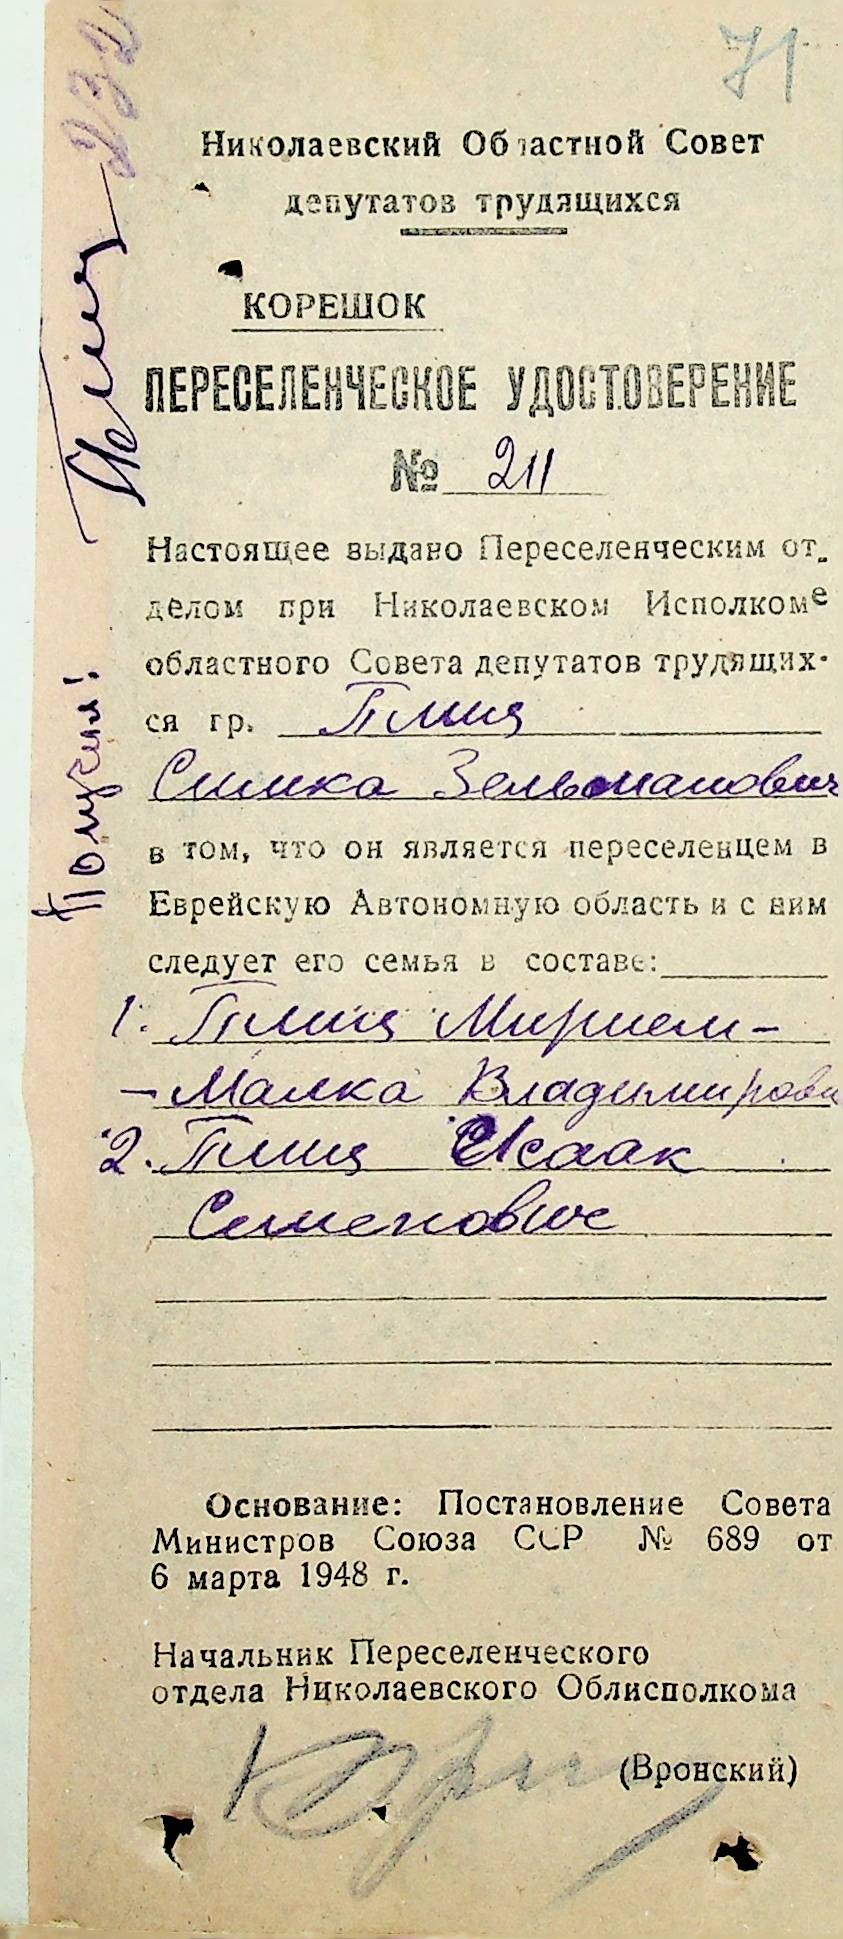 71
232
Николаевский Областной Совет
депутатов трудящихся
КОРЕШОК
ПЕРЕСЕЛЕНЧЕСКОЕ УДОСТОВЕРЕНИЕ
№ 211
Настоящее выдано Переселенческим от-
делом при Николаевском Исполкоме
областного Совета депутатов трудящих-
ся гр. Плиц
Симха Зельманович
в том, что он является переселенцем в
Еврейскую Автономную область и с ним
следует его семья в составе:
1. Плиц Мирием-
- Малка Владимировн
2. Плиц Исаак
Семенович
Основание: Постановление Совета
Министров Союза ССР № 689 от
6 марта 1948 г.
Начальник Переселенческого
отдела Николаевского Облисполкома
(Вронский)
Получил!